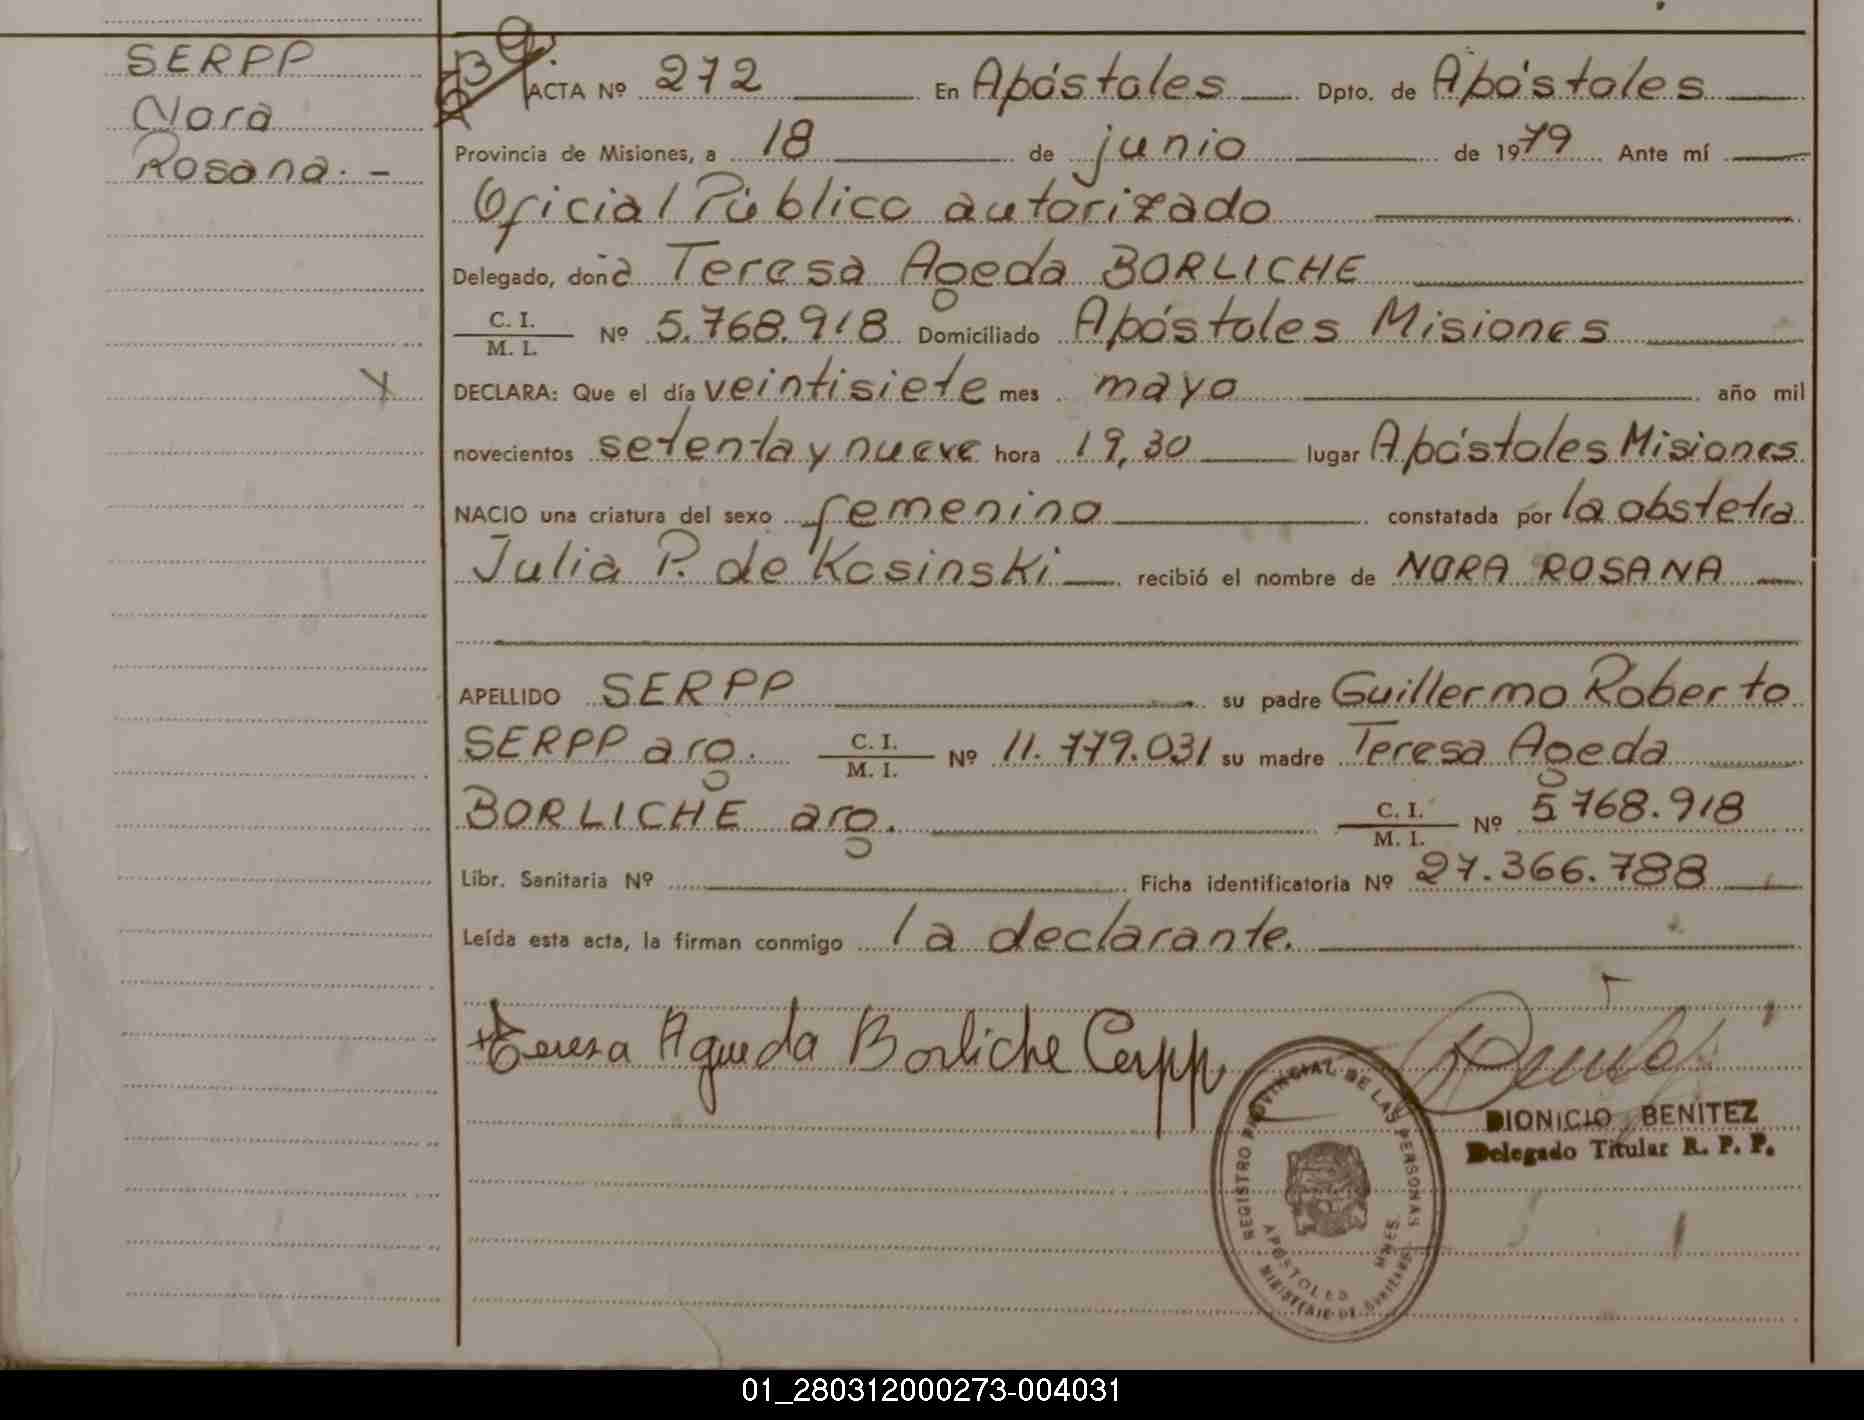 SERPP
Nora
Rosana. -
ACTA Nº 272 En Apóstoles Dpto. de Apóstoles
Provincia de Misiones, a 18 de junio de 1979 Ante mí
Oficial Público autorizado
Delegado, doña Teresa Ageda BORLICHE
C. I. / M. I. Nº 5.768.918 Domiciliado Apóstoles Misiones
DECLARA: Que el día veintisiete mes mayo año mil
novecientos setenta y nueve hora 19,30 lugar Apóstoles Misiones
NACIO una criatura del sexo femenino constatada por la obstetra
Julia P. de Kosinski recibió el nombre de NORA ROSANA
APELLIDO SERPP su padre Guillermo Roberto
SERPP arg. C. I. / M. I. Nº 11.779.031 su madre Teresa Ageda
BORLICHE arg. C. I. / M. I. Nº 5.768.918
Libr. Sanitaria Nº Ficha identificatoria Nº 27.366.788
Leída esta acta, la firman conmigo la declarante.
Teresa Agueda Borliche Cerpp
REGISTRO PROVINCIAL DE LAS PERSONAS
APOSTOLES MNES.
MINISTERIO DE
DIONICIO BENITEZ
Delegado Titular R. P. P.
01_280312000273-004031